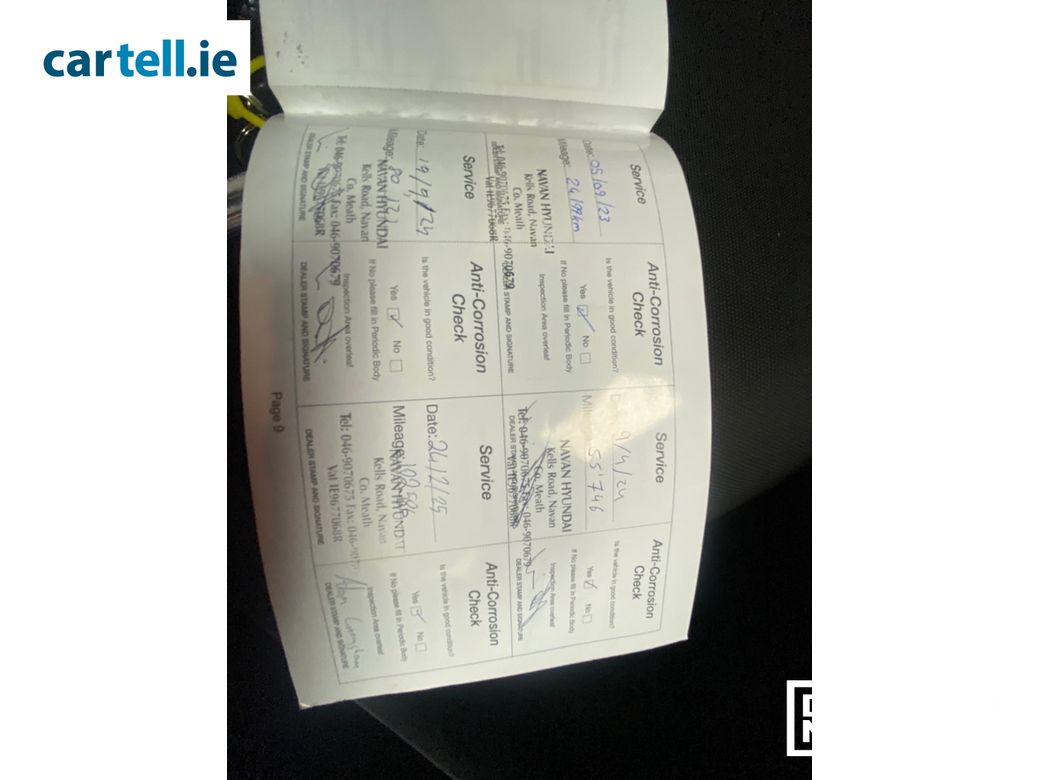 cartell.ie
Service
Date: 05/09/23
Mileage: 26199km
NAVAN HYUNDAI
Kells Road, Navan
Co. Meath
Tel: 046-9070675 Fax: 046-9070679
Vat IE9677068R
Anti-Corrosion
Check
Is the vehicle in good condition?
Yes No
If No please fill in Periodic Body
Inspection Area overleaf
DEALER STAMP AND SIGNATURE
Service
9/4/24
55'746
NAVAN HYUNDAI
Kells Road, Navan
Co. Meath
Tel: 046-9070675 Fax: 046-9070679
Vat IE9677068R
DEALER STAMP AND SIGNATURE
Anti-Corrosion
Check
Is the vehicle in good condition?
Yes No
If No please fill in Periodic Body
Inspection Area overleaf
DEALER STAMP AND SIGNATURE
Service
Date: 19/9/24
Mileage:
NAVAN HYUNDAI
Kells Road, Navan
Co. Meath
Tel: 046-9070675 Fax: 046-9070679
DEALER STAMP AND SIGNATURE
Anti-Corrosion
Check
Is the vehicle in good condition?
Yes No
If No please fill in Periodic Body
Inspection Area overleaf
DEALER STAMP AND SIGNATURE
Service
Date: 24/2/25
Mileage:
NAVAN HYUNDAI
Kells Road, Navan
Co. Meath
Tel: 046-9070675 Fax: 046-907
Vat IE9677068R
DEALER STAMP AND SIGNATURE
Anti-Corrosion
Check
Is the vehicle in good condition?
Yes No
If No please fill in Periodic Body
Inspection Area overleaf
DEALER STAMP AND SIGNATURE
Page 9